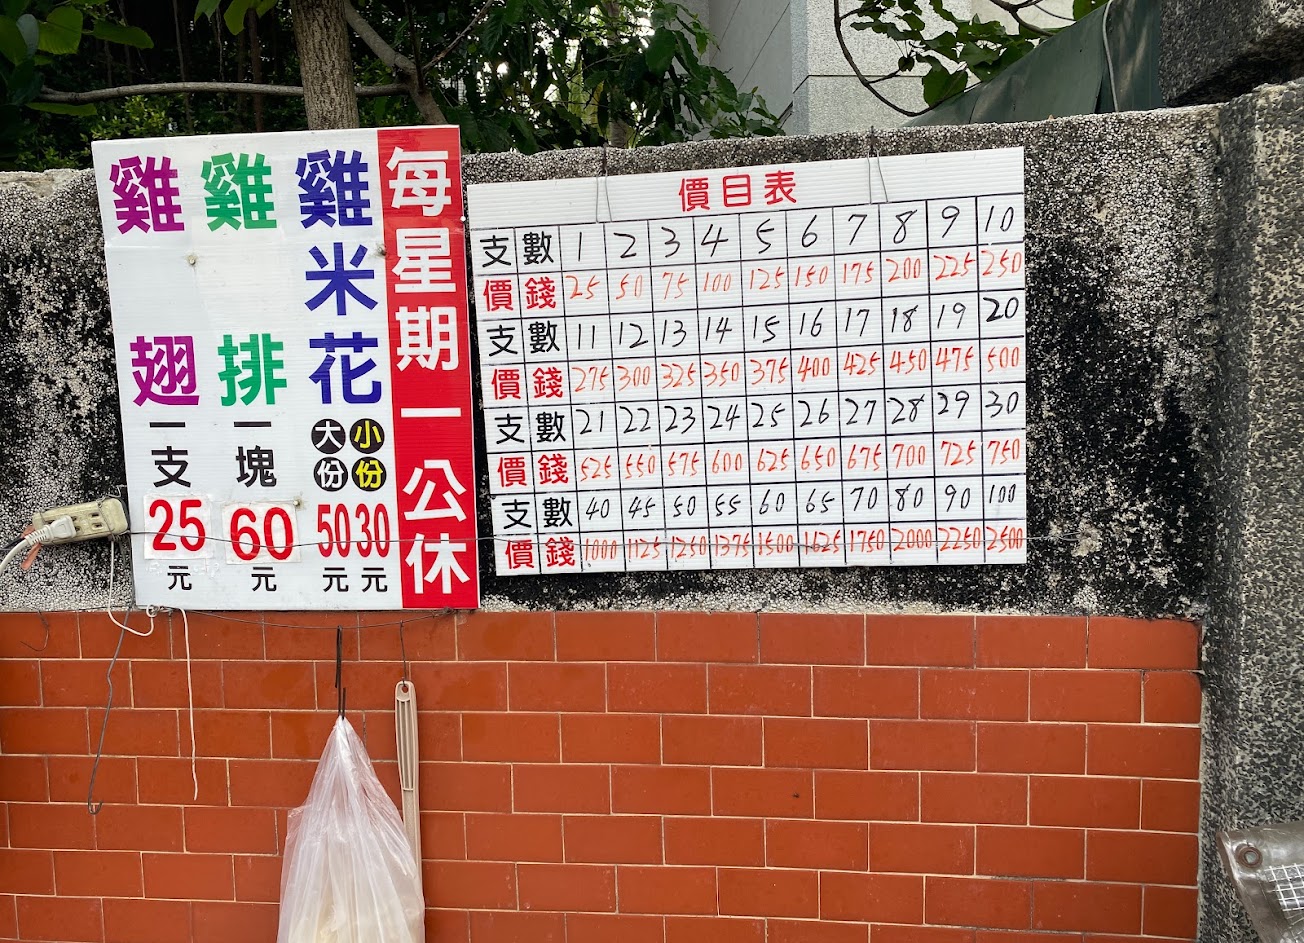 每星期一公休
雞米花
大份 小份
50元 30元
雞排
一塊
60元
雞翅
一支
25元
價目表
支數 1 2 3 4 5 6 7 8 9 10
價錢 25 50 75 100 125 150 175 200 225 250
支數 11 12 13 14 15 16 17 18 19 20
價錢 275 300 325 350 375 400 425 450 475 500
支數 21 22 23 24 25 26 27 28 29 30
價錢 525 550 575 600 625 650 675 700 725 750
支數 40 45 50 55 60 65 70 80 90 100
價錢 1000 1125 1250 1375 1500 1625 1750 2000 2250 2500